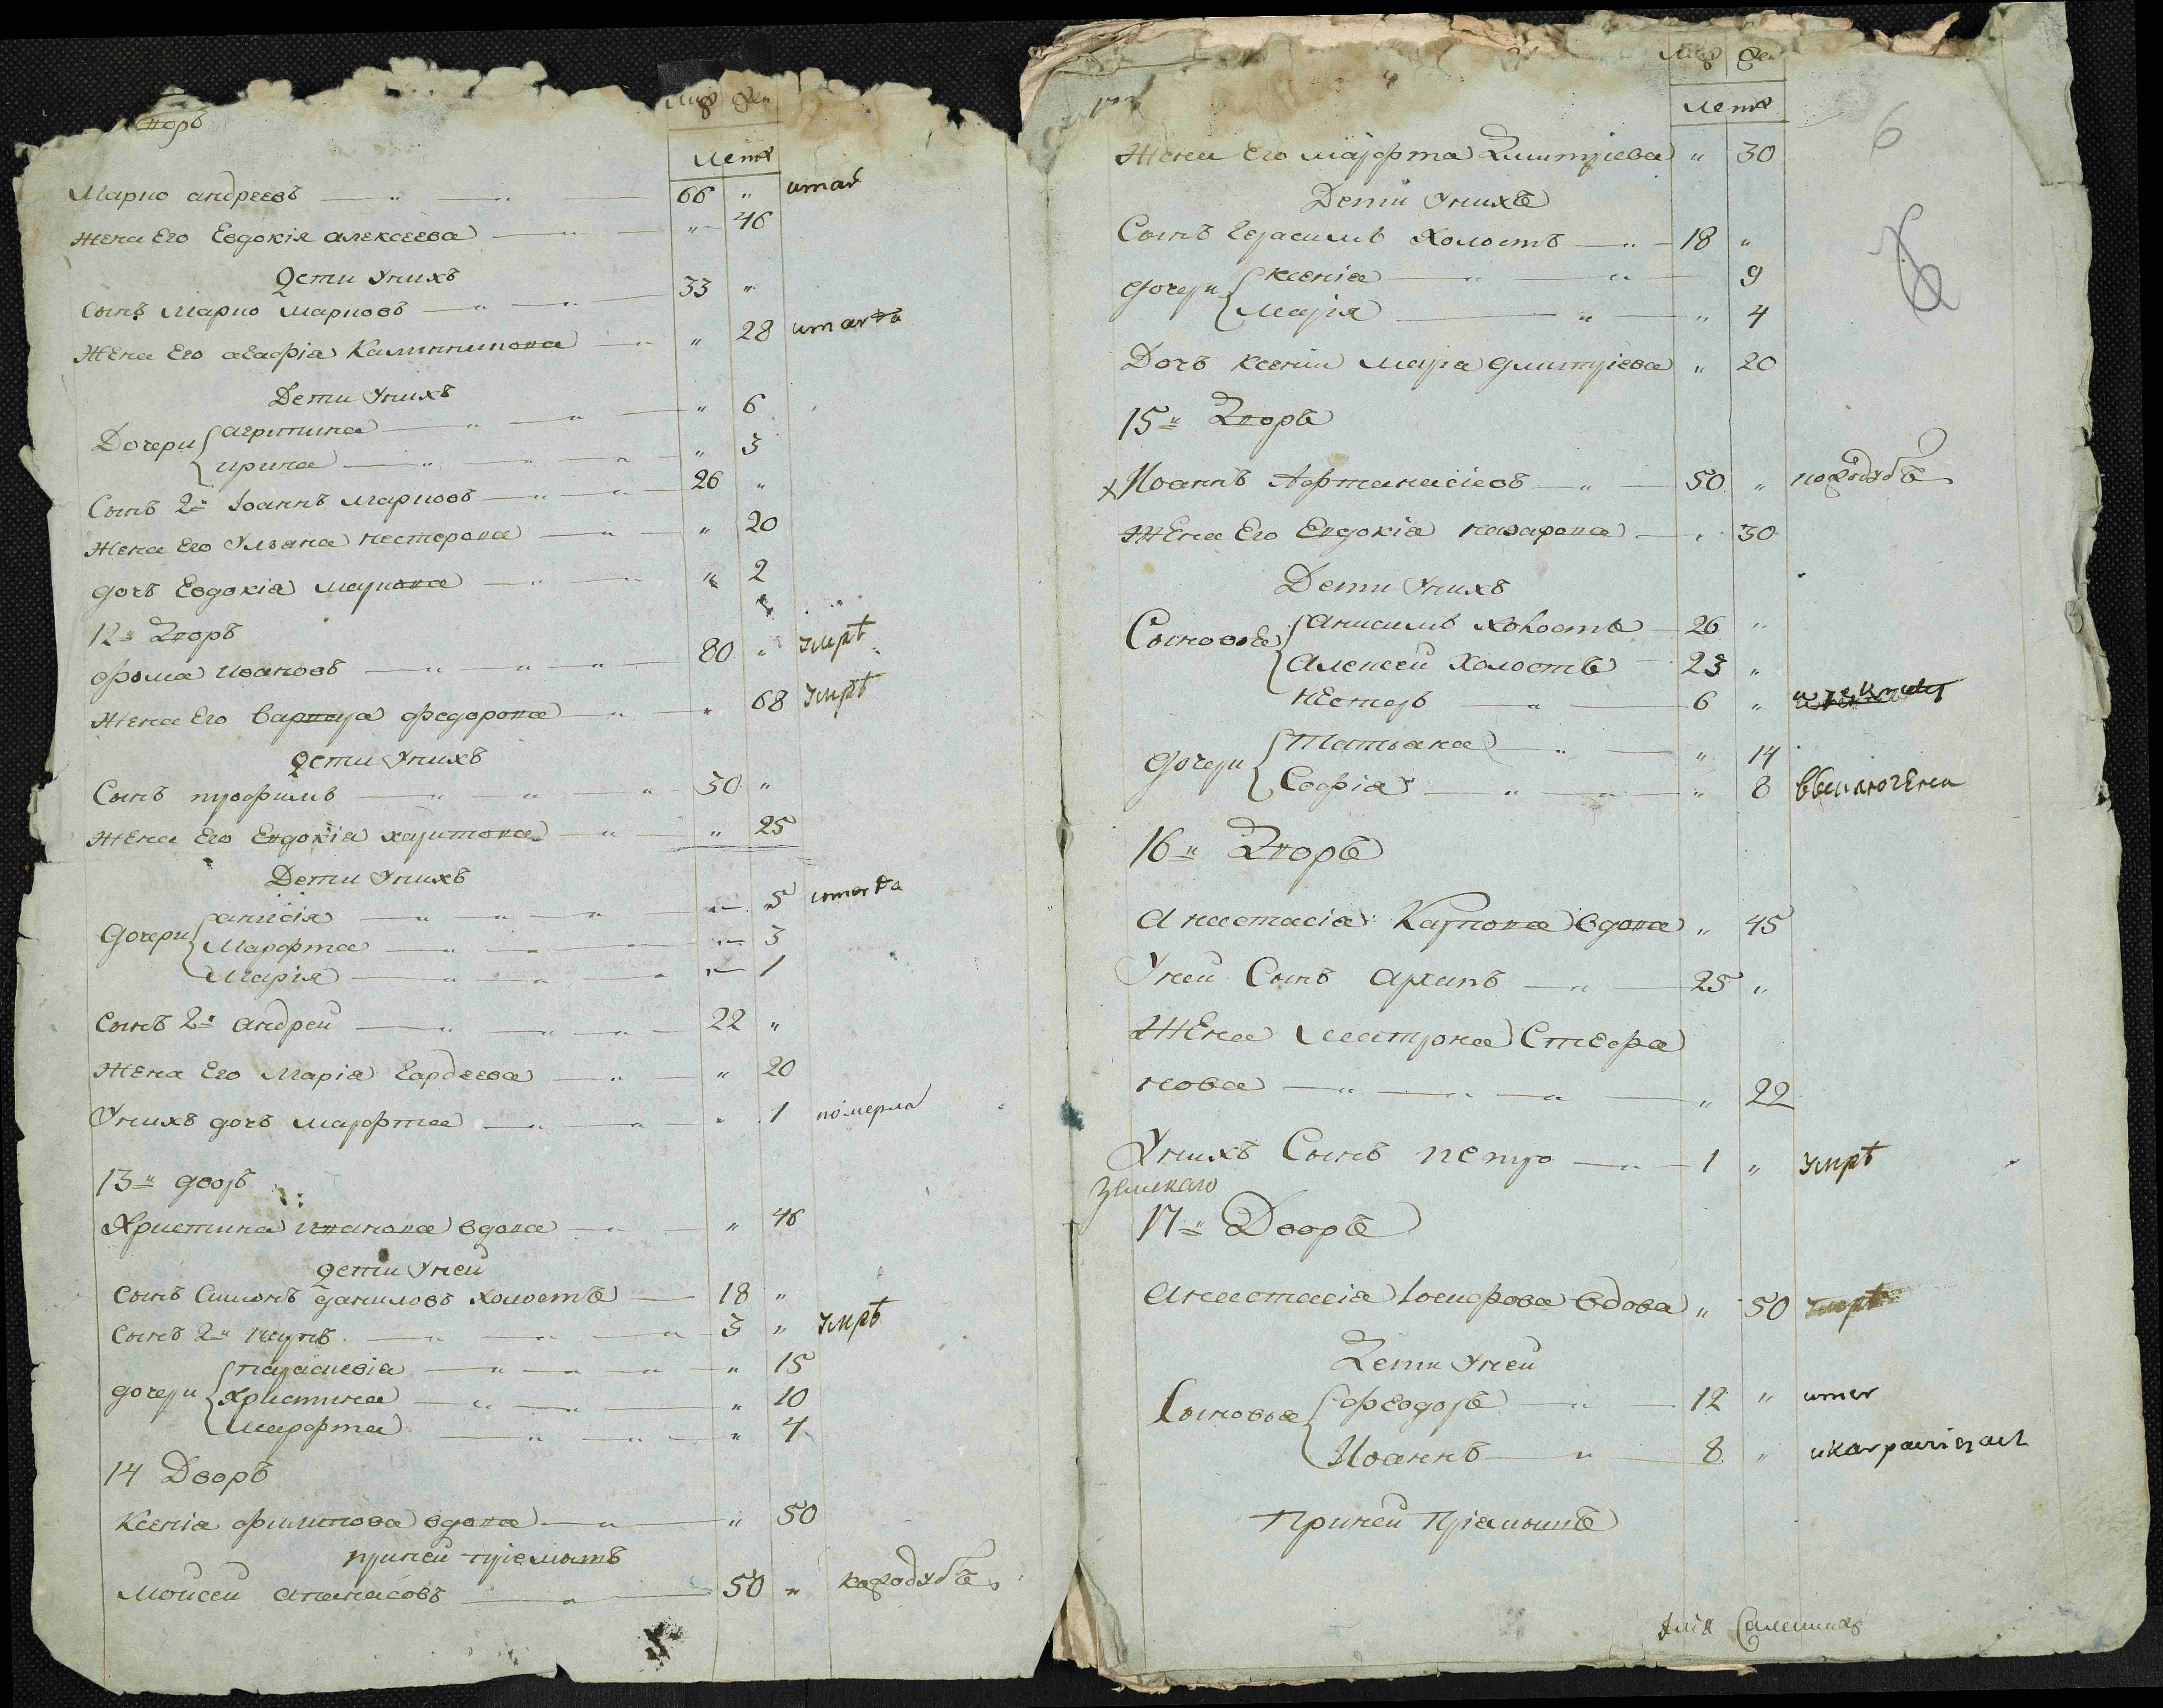 дворъ
Муж Жен
Летъ
Марко андреевъ 66 "
жена Его Евдокія алексеева " 46
Дети Унихъ
Сынъ Марко Марковъ 33 "
Жена Его агафіа Калиникова " 28
Дети Унихъ
Дочери агрипина " 6
ирина " 3
Сынъ 2й Іоаннъ Марковъ 26 "
Жена Его Ульана нестерова " 20
дочъ Евдокіа маркова " 2
12й Дворъ
фома ивановъ 80 " умрѣ
Жена Его варвара федорова " 68 умрѣ
Дети Унихъ
Сынъ трофимъ 30 "
Жена Его Евдокіа харитонова " 25
Дети Унихъ
Дочери анисія " 5
Марфта " 3
Марія " 1
Сынъ 2й андрей 22 "
Жена Его Маріа Гардеева " 20
Унихъ дочъ марфта " 1 померла
13й дворъ
Христина иванова вдова " 46
Дети Уней
Сынъ Симонъ даниловъ холостъ 18 "
Сынъ 2й карпъ 3 " умрѣ
дочери параскевіа " 15
Христина " 10
Марфта " 4
14 Дворъ
Ксеніа филипова вдова " 50
приней пріемышъ
Моисей атанасовъ 50 "
6
Муж Жен
Летъ
Жена Его марфта Дмитріева " 30
Дети Унихъ
Сынъ Герасимъ Холостъ 18 "
Дочери Ксеніа 9
Маріа " 4
Дочъ Ксеніи Мавра Дмитріева " 20
15й Дворъ
Иоаннъ Афтанасіевъ 50 "
Жена Его Евдокіа назарова " 30
Дети Унихъ
Сыновья анисимъ холостъ 26 "
алексей холостъ 23 "
нестеръ 6 "
Дочери Татьана " 14
Софіа " 8
16й Дворъ
анастасіа Карпова вдова " 45
Уней Сынъ архипъ 25 "
Жена матрона Стефа
нова " 22
Унихъ Сынъ петро 1 " умрѣ
17й Дворъ
анастасіа Іосифова вдова " 50 умрѣ
Дети Уней
Сыновья феодоръ 12 "
Иоаннъ 8 "
Приней Пріемышъ